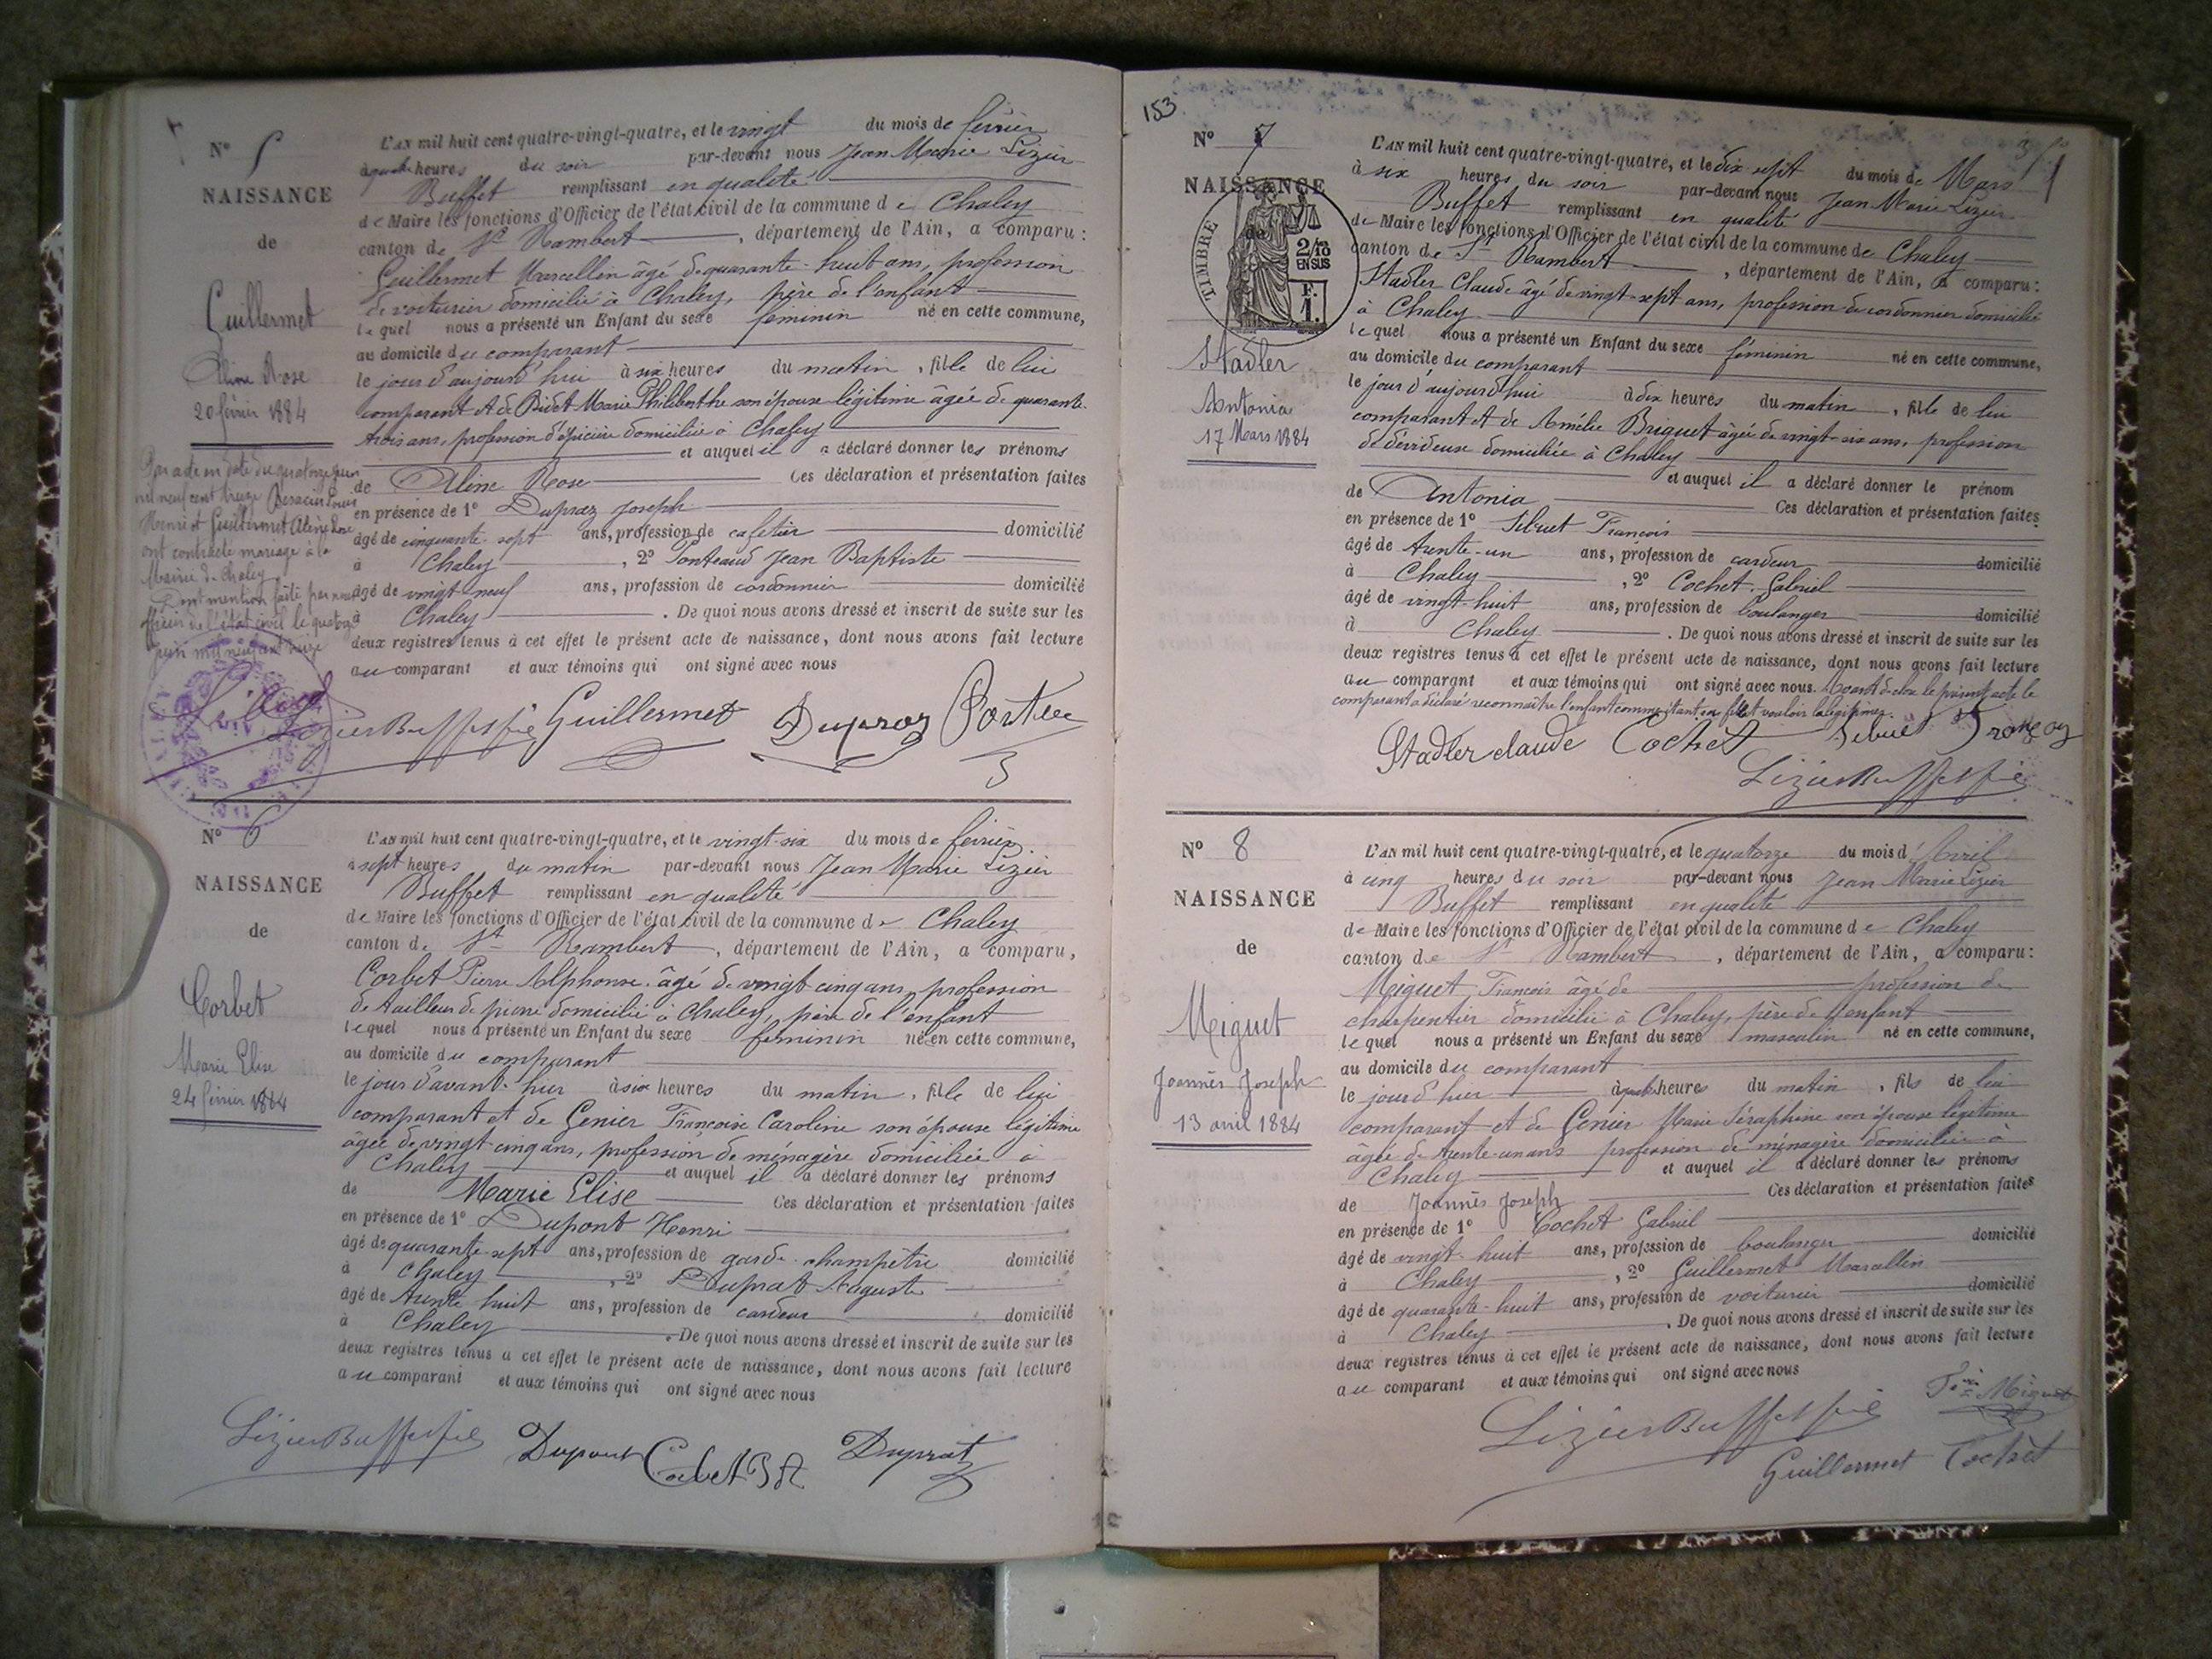 N° 5
NAISSANCE
de
Guillermet
Aline Rose
20 février 1884
L'AN mil huit cent quatre-vingt-quatre, et le vingt du mois de février
à quatre heures du soir par-devant nous Jean Marie Lizier
Buffet remplissant en qualité
de Maire les fonctions d'Officier de l'état civil de la commune de Chaley
canton de St Rambert, département de l'Ain, a comparu :
Guillermet Marcellin âgé de quarante-huit ans, profession
de voiturier domicilié à Chaley, père de l'enfant
lequel nous a présenté un Enfant du sexe féminin né en cette commune,
au domicile du comparant
le jour d'aujourd'hui à six heures du matin, fille de lui
comparant et de Bidet Marie Philiberthe son épouse légitime âgée de quarante-
trois ans, profession d'épicière domiciliée à Chaley
et auquel il a déclaré donner les prénoms
de Aline Rose Ces déclaration et présentation faites
en présence de 1° Dupraz Joseph
âgé de cinquante-sept ans, profession de cafetier domicilié
à Chaley, 2° Jean Baptiste
âgé de vingt-neuf ans, profession de cordonnier domicilié
à Chaley. De quoi nous avons dressé et inscrit de suite sur les
deux registres tenus à cet effet le présent acte de naissance, dont nous avons fait lecture
au comparant et aux témoins qui ont signé avec nous
Par acte en date du quatorze juin
mil neuf cent treize Louis
Henri et Guillermet Aline Rose
ont contracté mariage à la
Mairie de Chaley
Dont mention faite par nous
officier de l'état civil le quatorze
juin mil neuf cent treize
Lizier Buffet fils Guillermet Dupraz
N° 6
NAISSANCE
de
Corbet
Marie Elise
24 février 1884
L'AN mil huit cent quatre-vingt-quatre, et le vingt-six du mois de février
à sept heures du matin par-devant nous Jean Marie Lizier
Buffet remplissant en qualité
de Maire les fonctions d'Officier de l'état civil de la commune de Chaley
canton de St Rambert, département de l'Ain, a comparu,
Corbet Pierre Alphonse âgé de vingt cinq ans, profession
de tailleur de pierre domicilié à Chaley, père de l'enfant
lequel nous a présenté un Enfant du sexe féminin né en cette commune,
au domicile du comparant
le jour d'avant-hier à six heures du matin, fille de lui
comparant et de Genier Françoise Caroline son épouse légitime
âgée de vingt cinq ans, profession de ménagère domiciliée à
Chaley et auquel il a déclaré donner les prénoms
de Marie Elise Ces déclaration et présentation faites
en présence de 1° Dupont Henri
âgé de quarante-sept ans, profession de garde-champêtre domicilié
à Chaley, 2° Duprat Auguste
âgé de trente huit ans, profession de cardeur domicilié
à Chaley. De quoi nous avons dressé et inscrit de suite sur les
deux registres tenus à cet effet le présent acte de naissance, dont nous avons fait lecture
au comparant et aux témoins qui ont signé avec nous
Lizier Buffet fils Dupont Corbet P A Duprat
153
N° 7
NAISSANCE
de
TIMBRE
2/10
EN SUS
F.
1.
Stadler
Antonia
17 Mars 1884
L'AN mil huit cent quatre-vingt-quatre, et le dix sept du mois de Mars
à six heures du soir par-devant nous Jean Marie Lizier
Buffet remplissant en qualité
de Maire les fonctions d'Officier de l'état civil de la commune de Chaley
canton de St Rambert, département de l'Ain, a comparu :
Stadler Claude âgé de vingt-sept ans, profession de cordonnier domicilié
à Chaley
lequel nous a présenté un Enfant du sexe féminin né en cette commune,
au domicile du comparant
le jour d'aujourd'hui à dix heures du matin, fille de lui
comparant et de Amélie Briguet âgée de vingt-six ans, profession
de dévideuse domiciliée à Chaley
et auquel il a déclaré donner le prénom
de Antonia Ces déclaration et présentation faites
en présence de 1° Sibuet François
âgé de trente-un ans, profession de cardeur domicilié
à Chaley, 2° Cochet Gabriel
âgé de vingt-huit ans, profession de boulanger domicilié
à Chaley. De quoi nous avons dressé et inscrit de suite sur les
deux registres tenus à cet effet le présent acte de naissance, dont nous avons fait lecture
au comparant et aux témoins qui ont signé avec nous. Avant de clore le présent acte le
comparant a déclaré reconnaître l'enfant comme étant sa fille et vouloir la légitimer.
Stadler claude Cochet Sibuet François
Lizier Buffet fils
N° 8
NAISSANCE
de
Miguet
Joannès Joseph
13 avril 1884
L'AN mil huit cent quatre-vingt-quatre, et le quatorze du mois d'Avril
à cinq heures du soir par-devant nous Jean Marie Lizier
Buffet remplissant en qualité
de Maire les fonctions d'Officier de l'état civil de la commune de Chaley
canton de St Rambert, département de l'Ain, a comparu :
Miguet François âgé de profession de
charpentier domicilié à Chaley, père de l'enfant
lequel nous a présenté un Enfant du sexe masculin né en cette commune,
au domicile du comparant
le jour d'hier à quatre heures du matin, fils de lui
comparant et de Genier Marie Séraphine son épouse légitime
âgée de trente-un ans profession de ménagère domiciliée à
Chaley et auquel il a déclaré donner les prénoms
de Joannès Joseph Ces déclaration et présentation faites
en présence de 1° Cochet Gabriel
âgé de vingt-huit ans, profession de boulanger domicilié
à Chaley, 2° Guillermet Marcellin
âgé de quarante-huit ans, profession de voiturier domicilié
à Chaley. De quoi nous avons dressé et inscrit de suite sur les
deux registres tenus à cet effet le présent acte de naissance, dont nous avons fait lecture
au comparant et aux témoins qui ont signé avec nous
Lizier Buffet fils Miguet
Guillermet Cochet